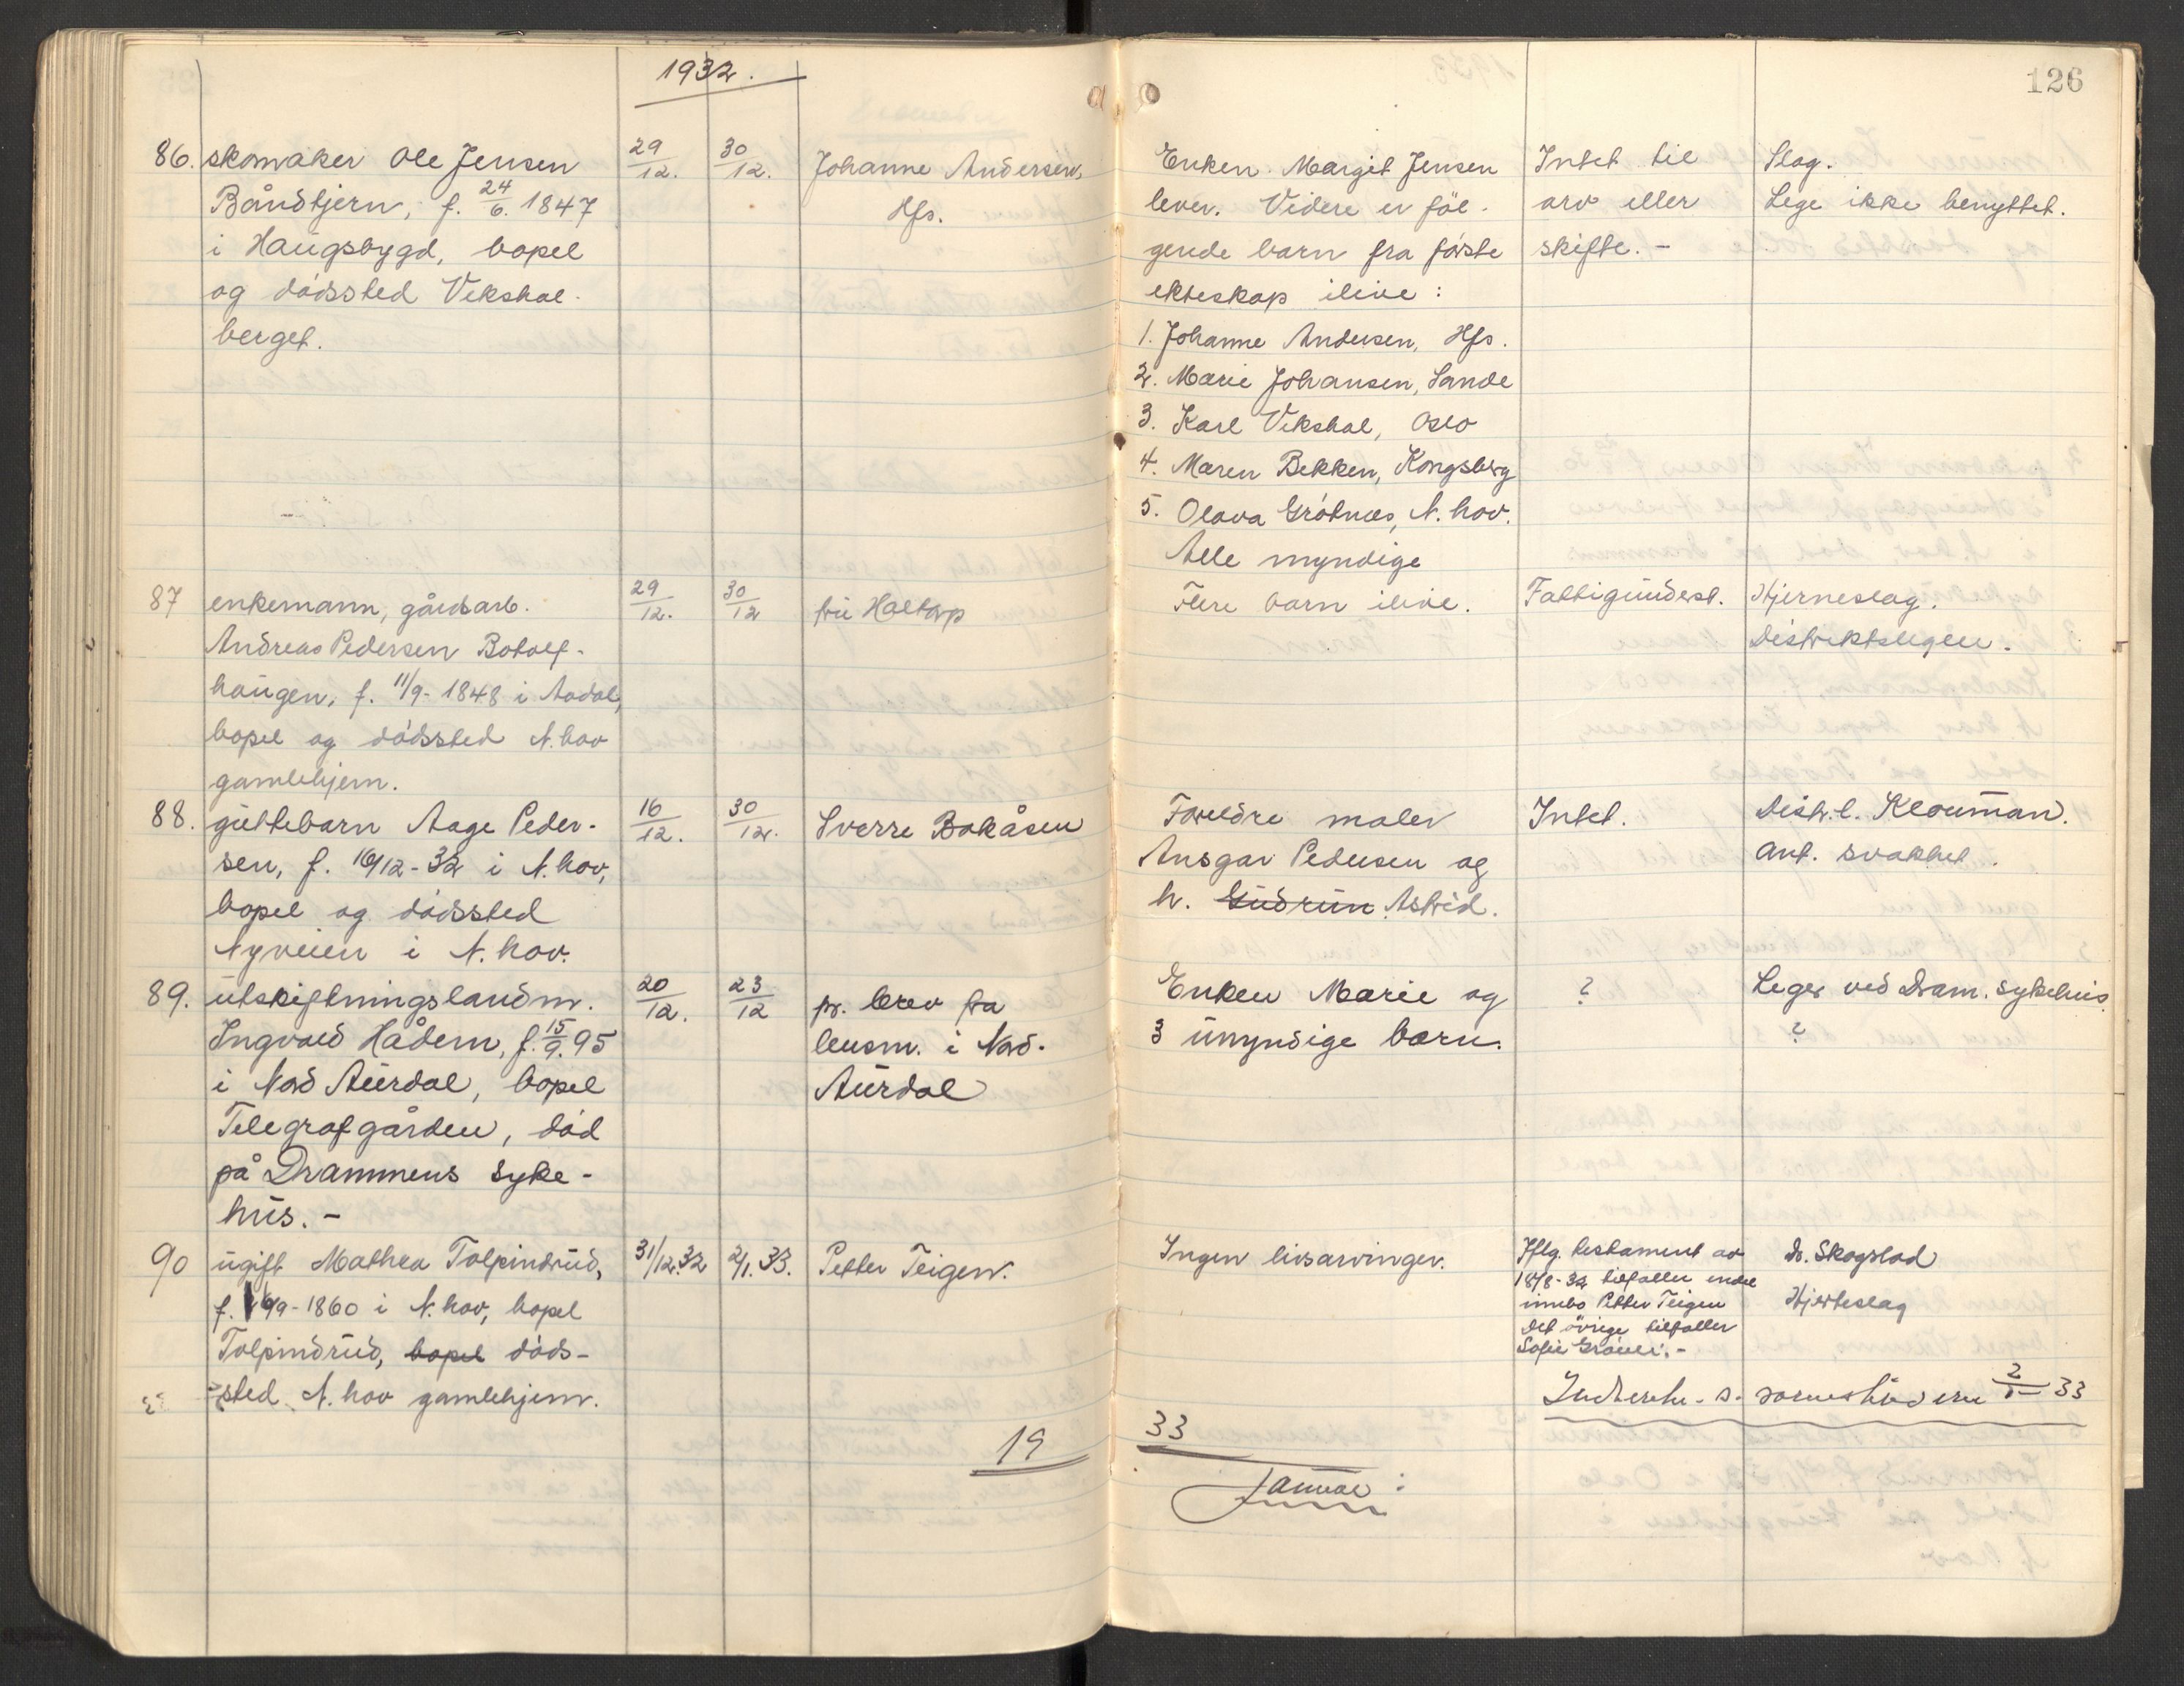 1932.
126
86. skomaker Ole Jensen
Båndtjern, f. 24/6. 1847
i Haugsbygd, bopel
og dödssted Vekshal-
berget.
29/12. 30/12. Johanne Andersen,
Hfs.
Enken Margit Jensen
lever. Videre er föl-
gende barn fra förste
ekteskap ilive:
1. Johanne Andersen, Hfs.
2. Marie Johansen, Sande
3. Karl Vekshal, Oslo
4. Maren Bekken, Kongsberg
5. Olava Grötnes, N. hov.
Alle myndige
Intet til
arv eller
skifte. -
Slag.
Lege ikke benyttet.
87 enkemann, gårdsarb.
Andreas Pedersen Botolf-
haugen, f. 11/9-1848 i Aadal,
bopel og dödssted N. hov
gamlehjem.
29/12. 30/12 fru Haltorp
Flere barn ilive.
Fattigunderst.
Hjerneslag.
Distriktslegen.
88. guttebarn Aage Peder-
sen, f. 16/12-32 i N. hov,
bopel og dödssted
Nyveien i N. hov.
16/12. 30/12. Sverre Bakåsen
Foreldre maler
Ansgar Pedersen og
h. Gudrun Astrid.
Intet.
Distr. l. Klouman.
Ant. svakhet.
89. utskiftningslandm.
Ingvald Hådem, f. 15/9. 95
i Nord Aurdal, bopel
Telegrafgården, död
på Drammens syke-
hus. -
20/12. 23/12 pr. brev fra
lensm. i Nord-
Aurdal
Enken Marie og
3 umyndige barn.
?
Leger ved Dram. sykehus.
?
90 ugift Mathea Tolpinrud,
f. 16/9-1860 i N. hov, bopel
Tolpinrud, bopel döds-
sted N. hov gamlehjem.
31/12.32 2/1. 33. Petter Teigen.
Ingen livsarvinger.
Iflg. testament av
18/8-32 tilfaller endel
innbo Petter Teigen
Det övrige tilfaller
Sofie
Dr. Skogstad
Hjerteslag
2/1-33
19
33
Januar: